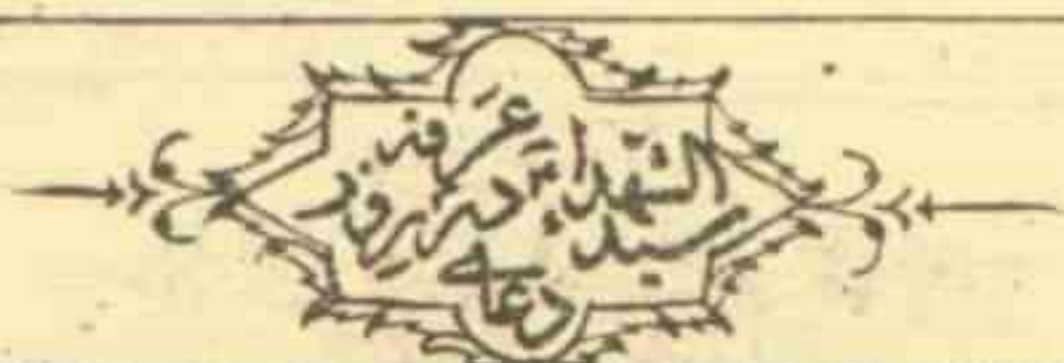 دعای سید الشّهداء در روز عَرَفه